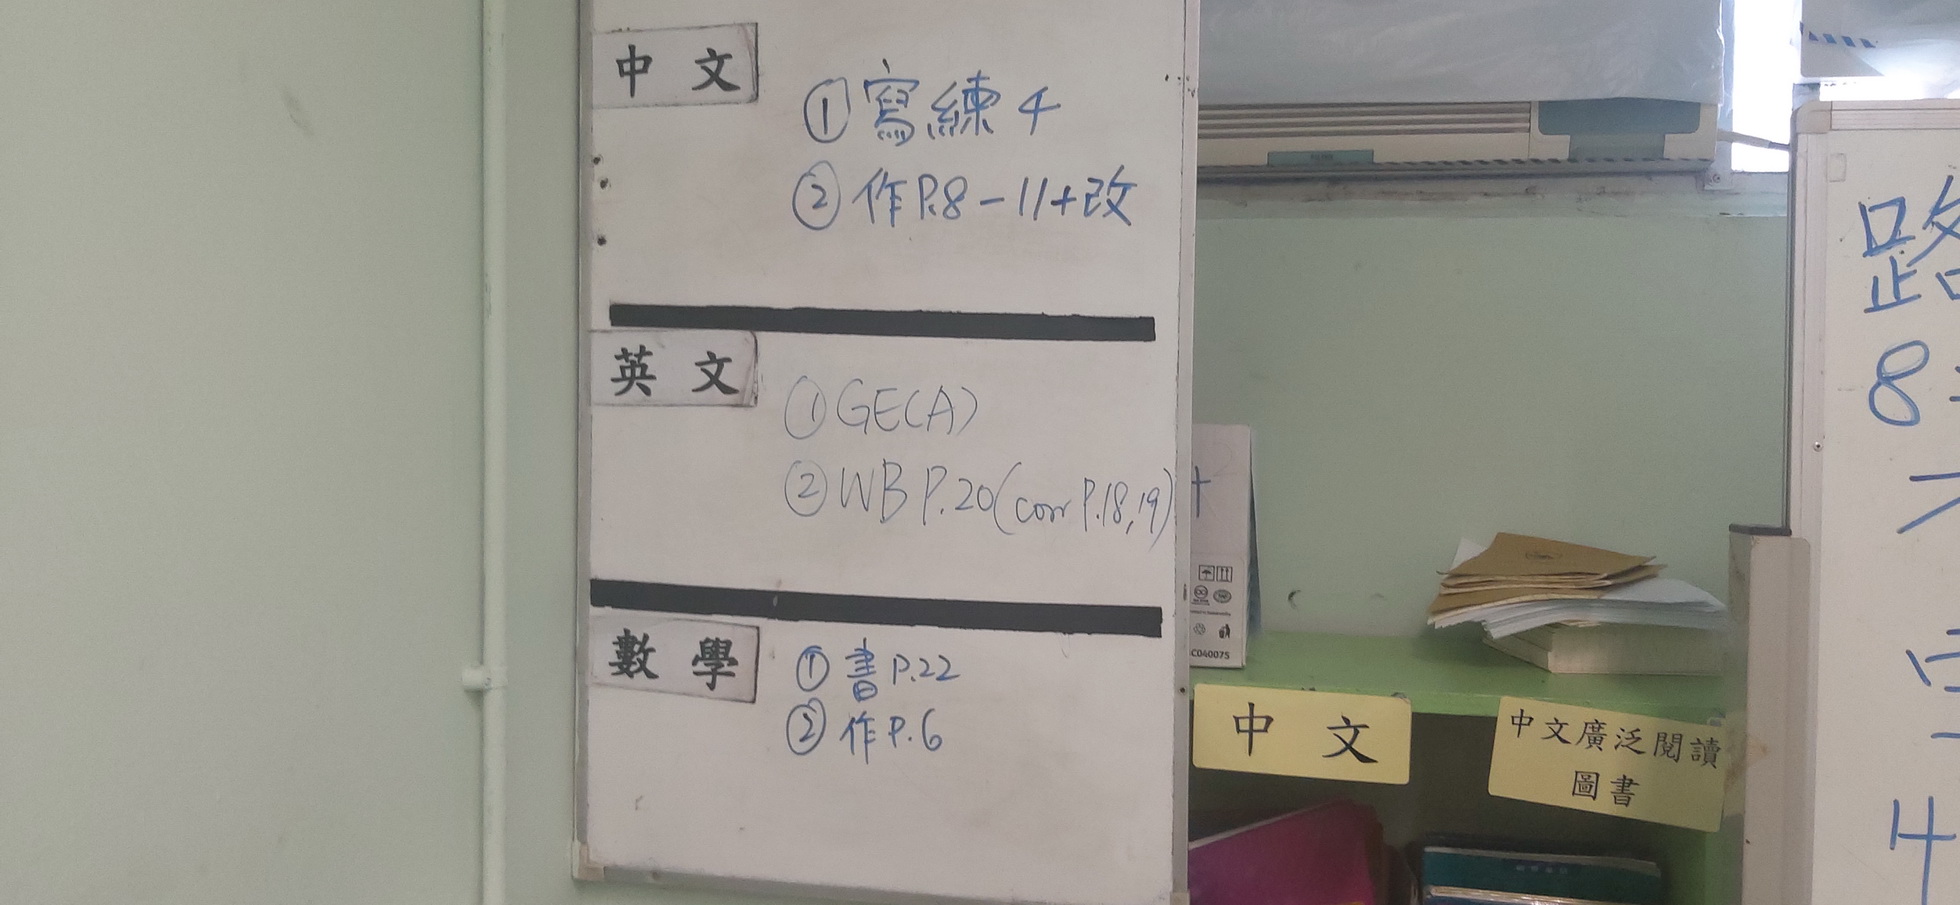 中文
① 寫練4
② 作P.8-11+改
英文
① GE(A)
② WB P.20(corr P.18,19)
數學
① 書P.22
② 作P.6
C040075
中文
中文廣泛閱讀
圖書
路
8: